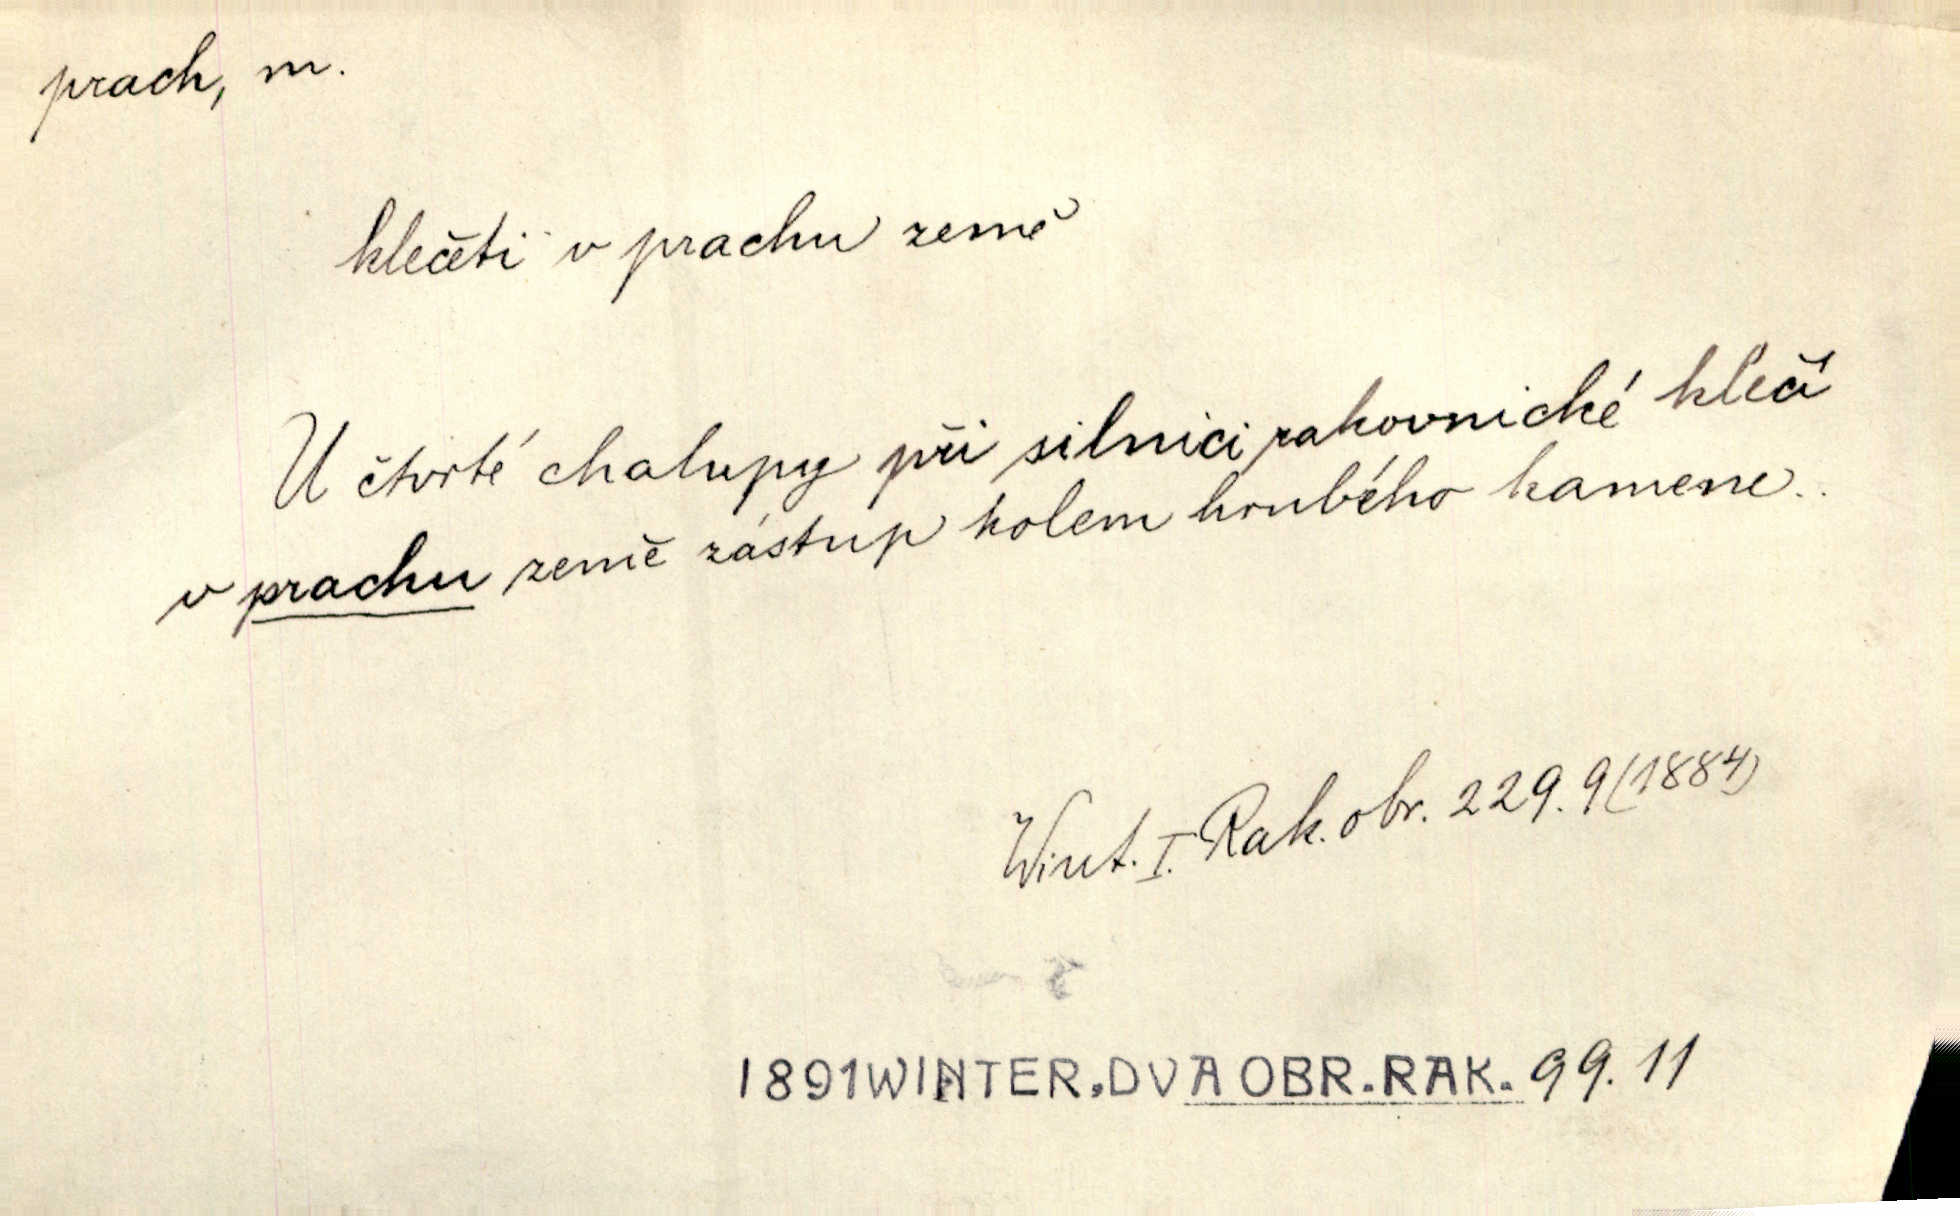 prach, m.
klečeti v prachu země
U čtvrté chalupy při silnici rakovnické klečí
v prachu země zástup kolem hrubého kamene..
Wint. I. Rak. obr. 229. 9 (1884)
1891 WINTER, DVA OBR. RAK. 99. 11